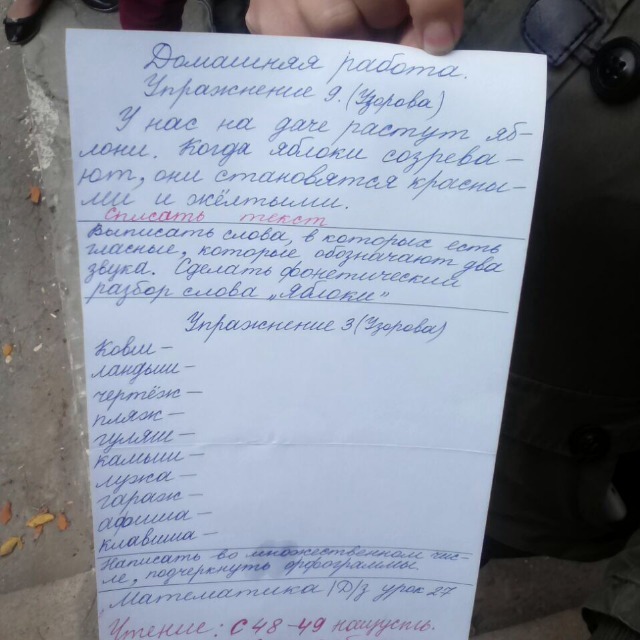 Домашняя работа.
Упражнение 9. (Узорова)
У нас на даче растут яб-
лони. Когда яблоки созрева-
ют, они становятся красны-
ми и жёлтыми.
Списать текст
Выписать слова, в которых есть
гласные, которые обозначают два
звука. Сделать фонетический
разбор слова „Яблоки"
Упражнение 3 (Узорова)
Ковш-
ландыш-
чертёж-
пляж-
гуляш-
камыш-
лужа-
гараж-
афиша-
клавиша-
Написать во множественном чис-
ле, подчеркнуть орфограммы
Математика /Д/з урок 27
Чтение: с 48-49 наизусть.